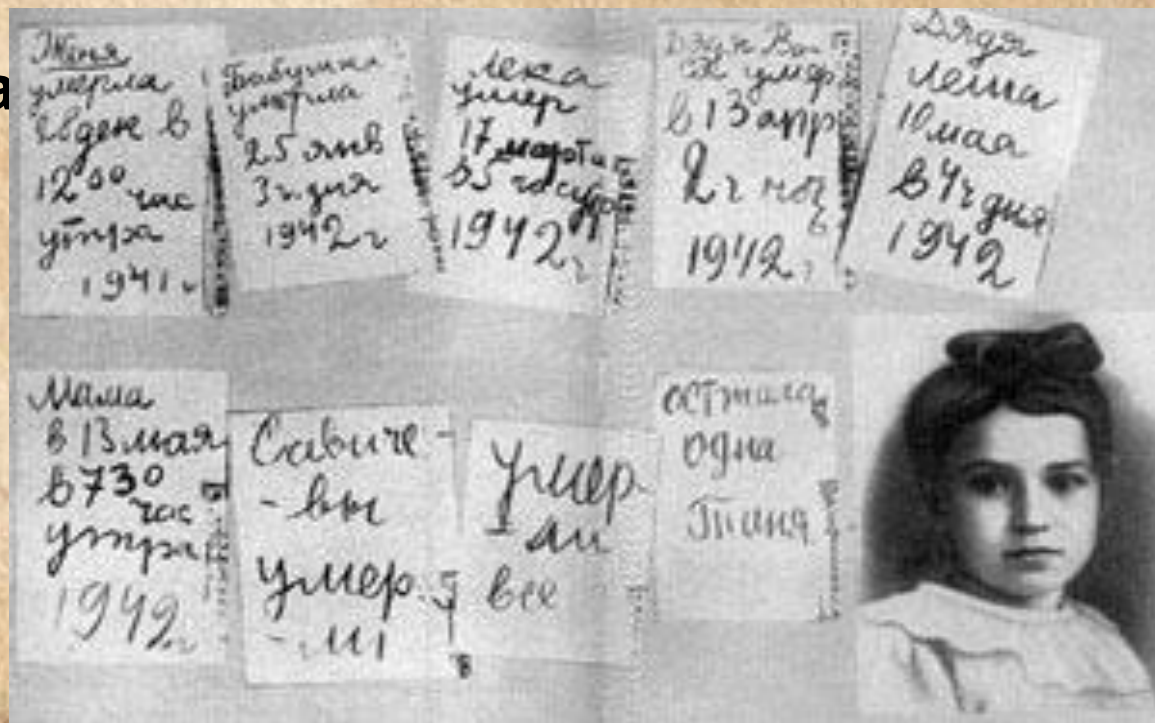 а
Женя
умерла
28 дек в
12 00 час
утра
1941 г
Бабушка
умерла
25 янв
3 ч. дня
1942 г
Лека
умер
17 марта
в 5 час утр
1942 г
Дядя Ва
ся умер
в 13 апр
2 ч ноч
1942 г
Дядя
Леша
10 мая
в 4 ч дня
1942
Мама
в 13 мая
в 730
час
утра
1942 г
Савиче
-вы
умер.
-ли
Умер
-ли
все
осталась
одна
Таня